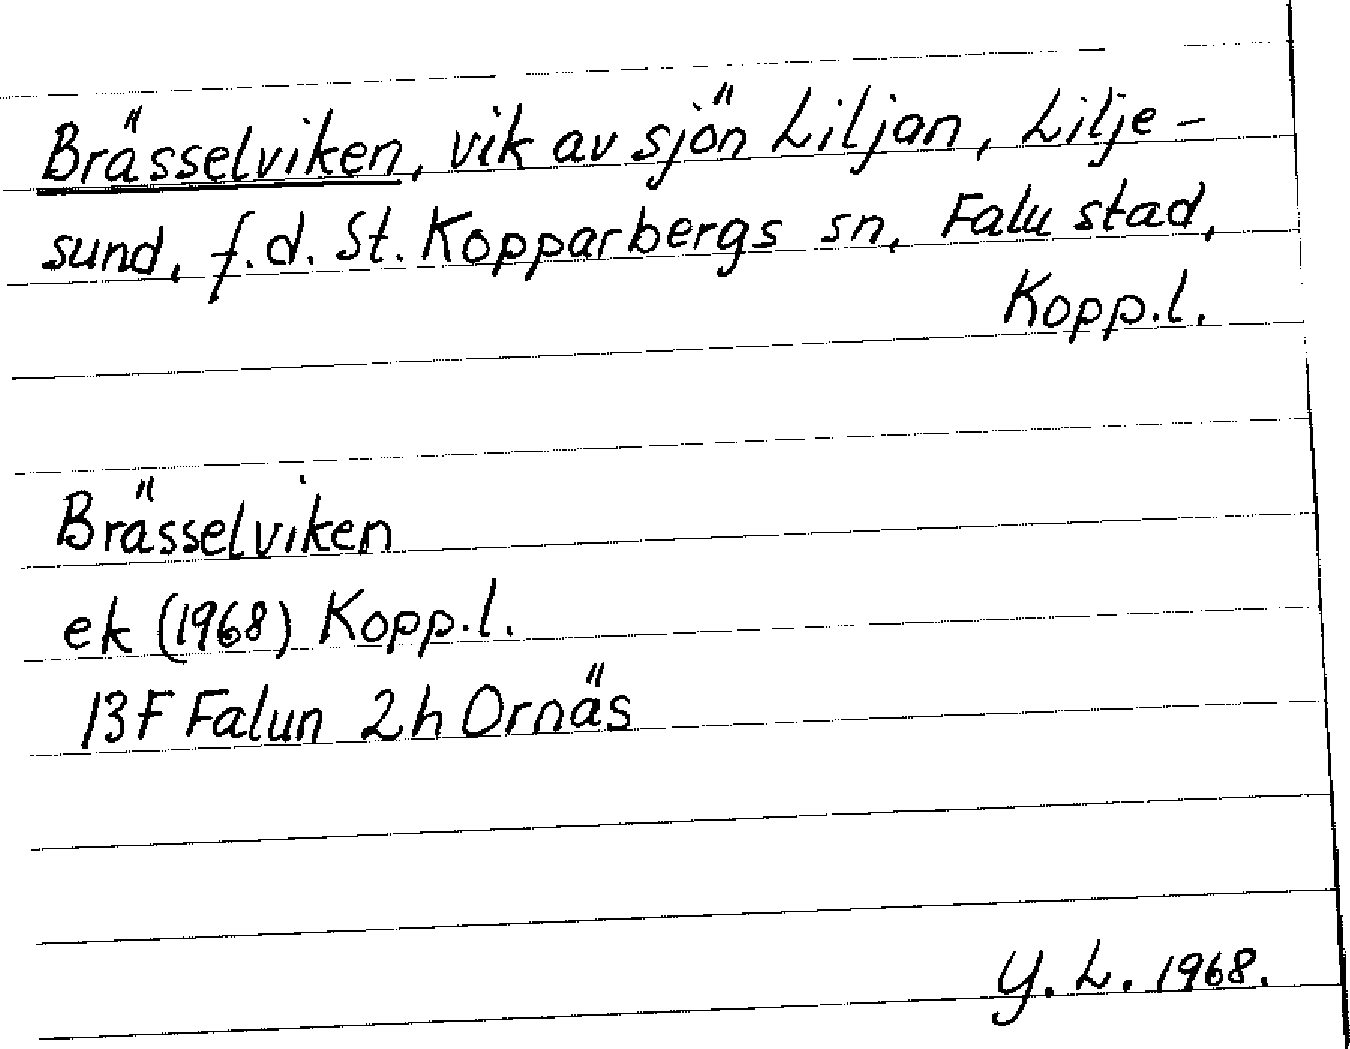 Brässelviken, vik av sjön Liljan, Lilje-
sund, f.d. St. Kopparbergs sn, Falu stad,
Kopp.l.
Brässelviken
ek (1968) Kopp.l.
13F Falun 2h Ornäs
Y. L. 1968.